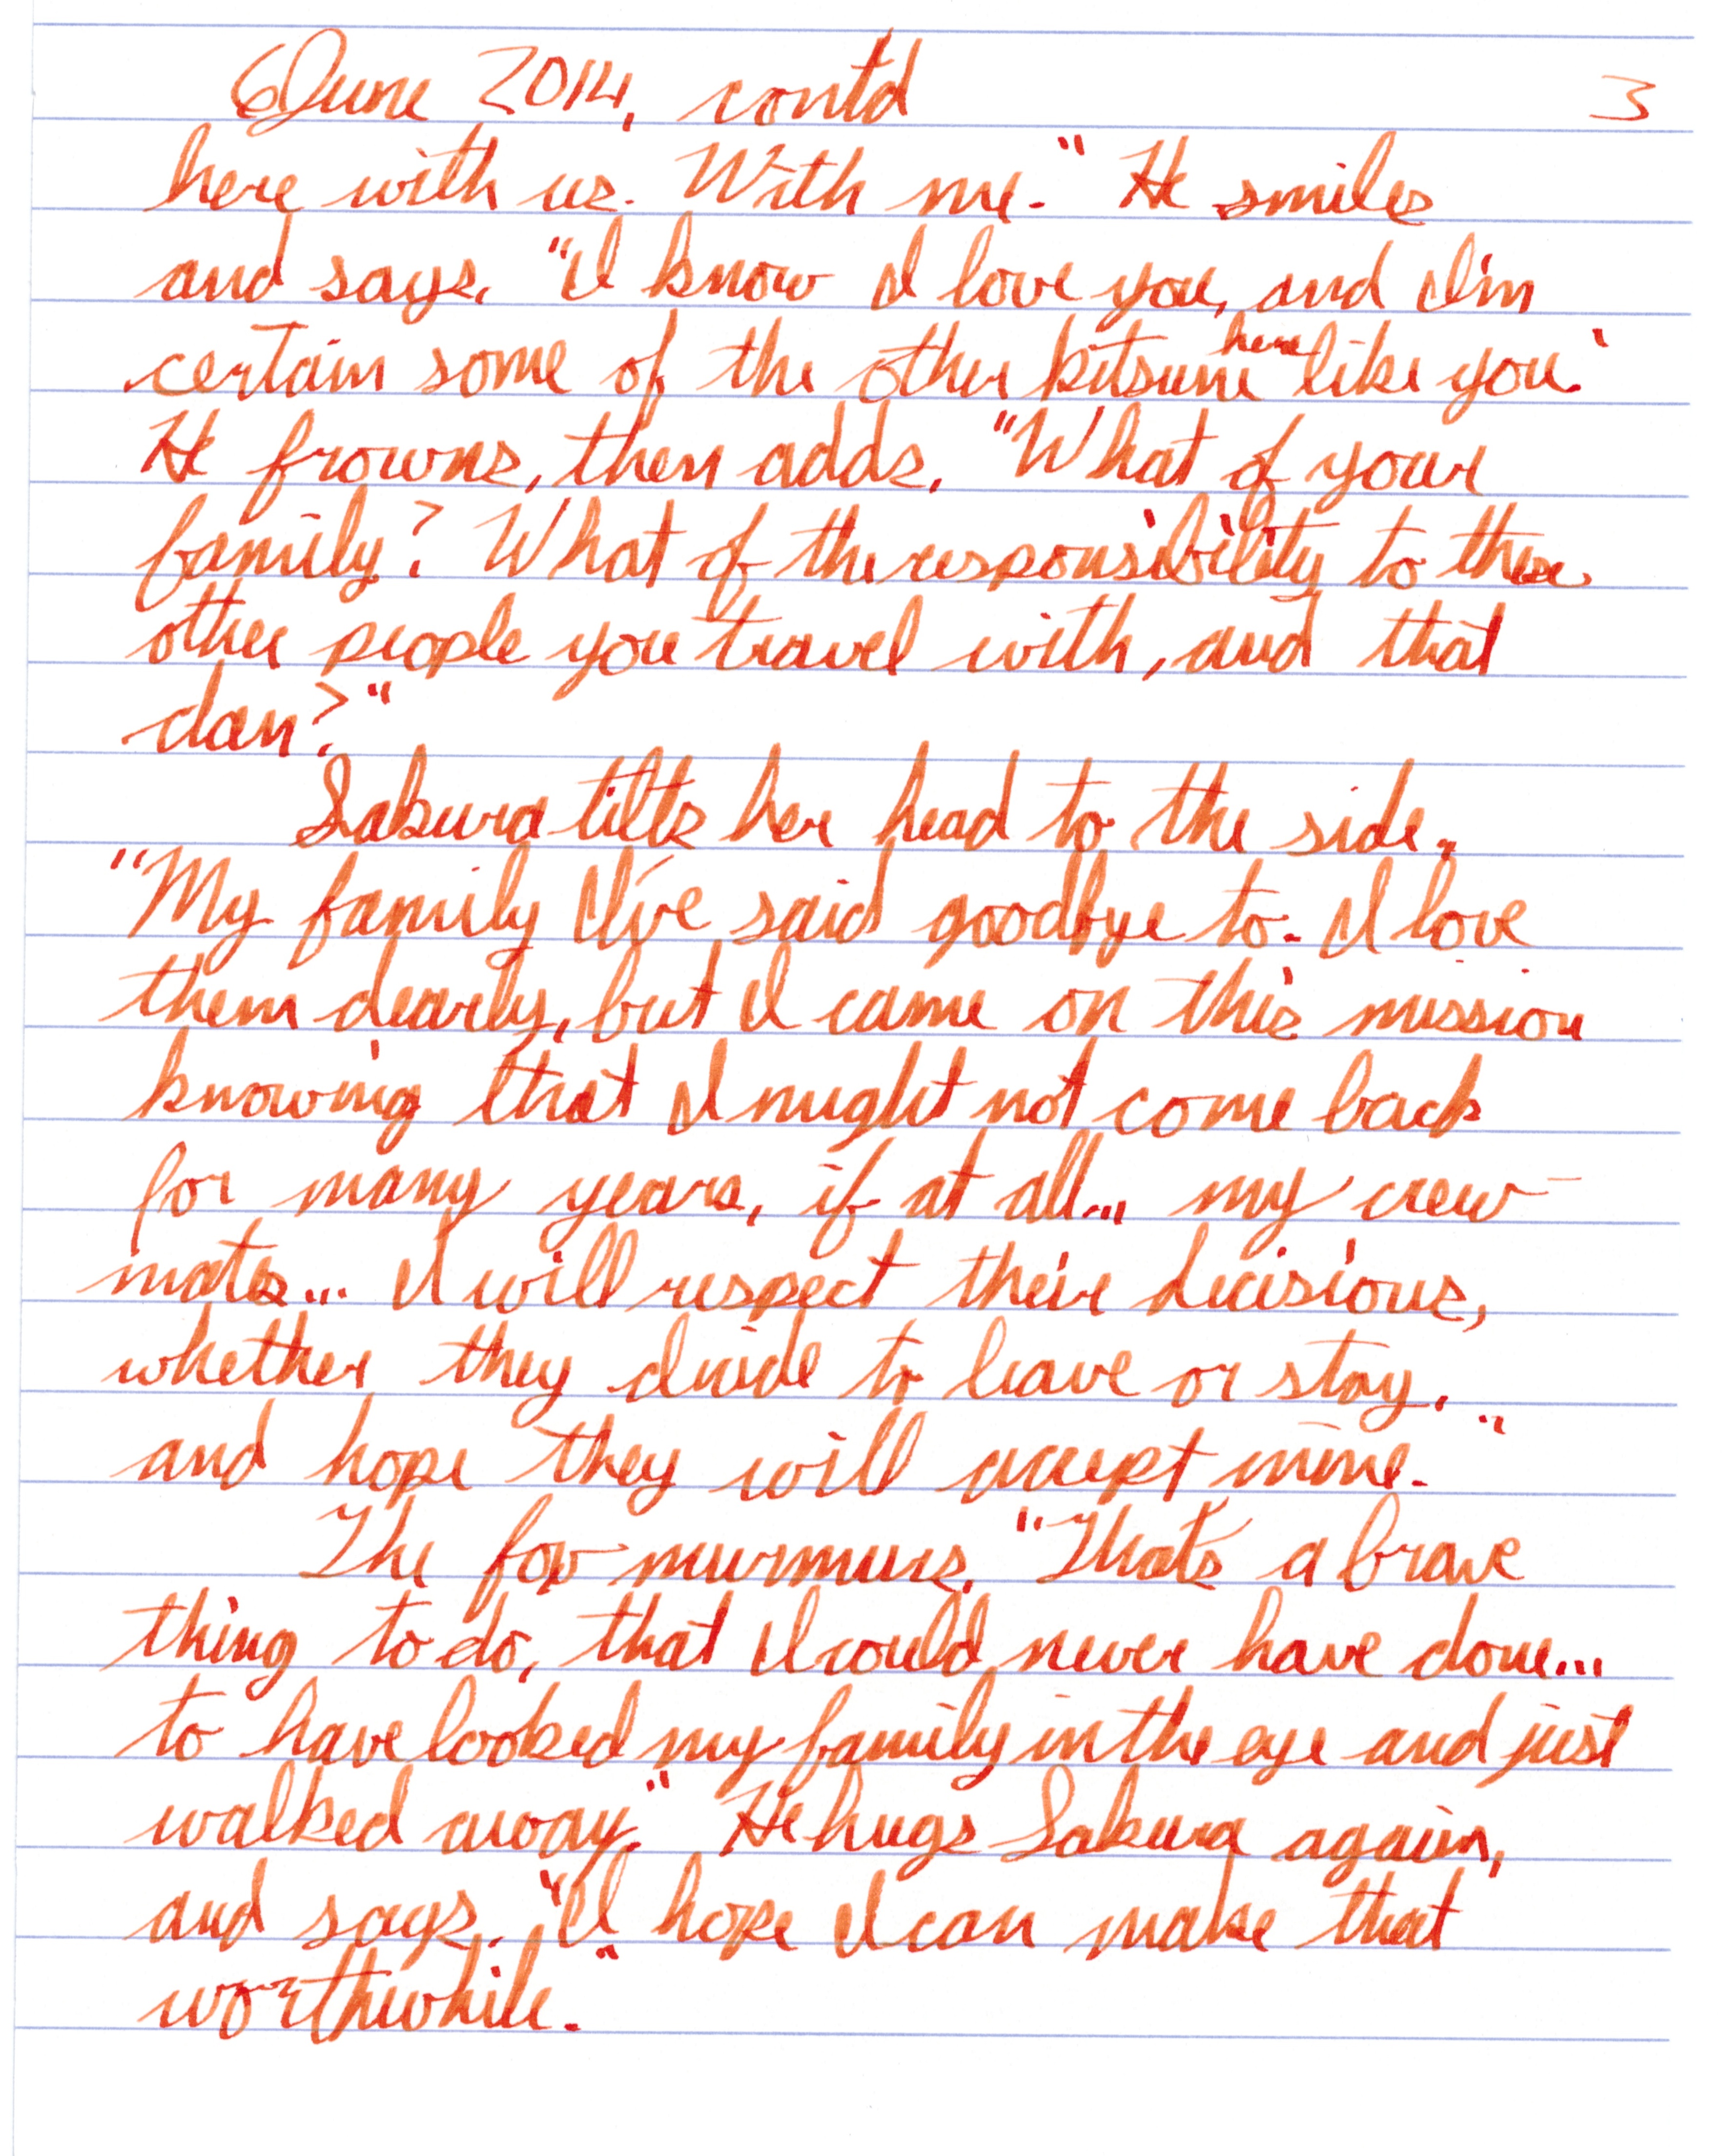 6 June 2014, contd 3
here with us. With me." He smiles
and says, "I know I love you, and I'm
certain some of the other kitsune here like you."
He frowns, then adds, "What of your
family? What of the responsibility to these
other people you travel with, and that
clan?"
Sakura tilts her head to the side.
"My family I've said goodbye to. I love
them dearly, but I came on this mission
knowing that I might not come back
for many years, if at all... my crew-
mates... I will respect their decisions,
whether they decide to leave or stay,
and hope they will accept mine."
The fox murmurs, "That's a brave
thing to do, that I could never have done...
to have looked my family in the eye and just
walked away." He hugs Sakura again,
and says, "I hope I can make that
worthwhile."